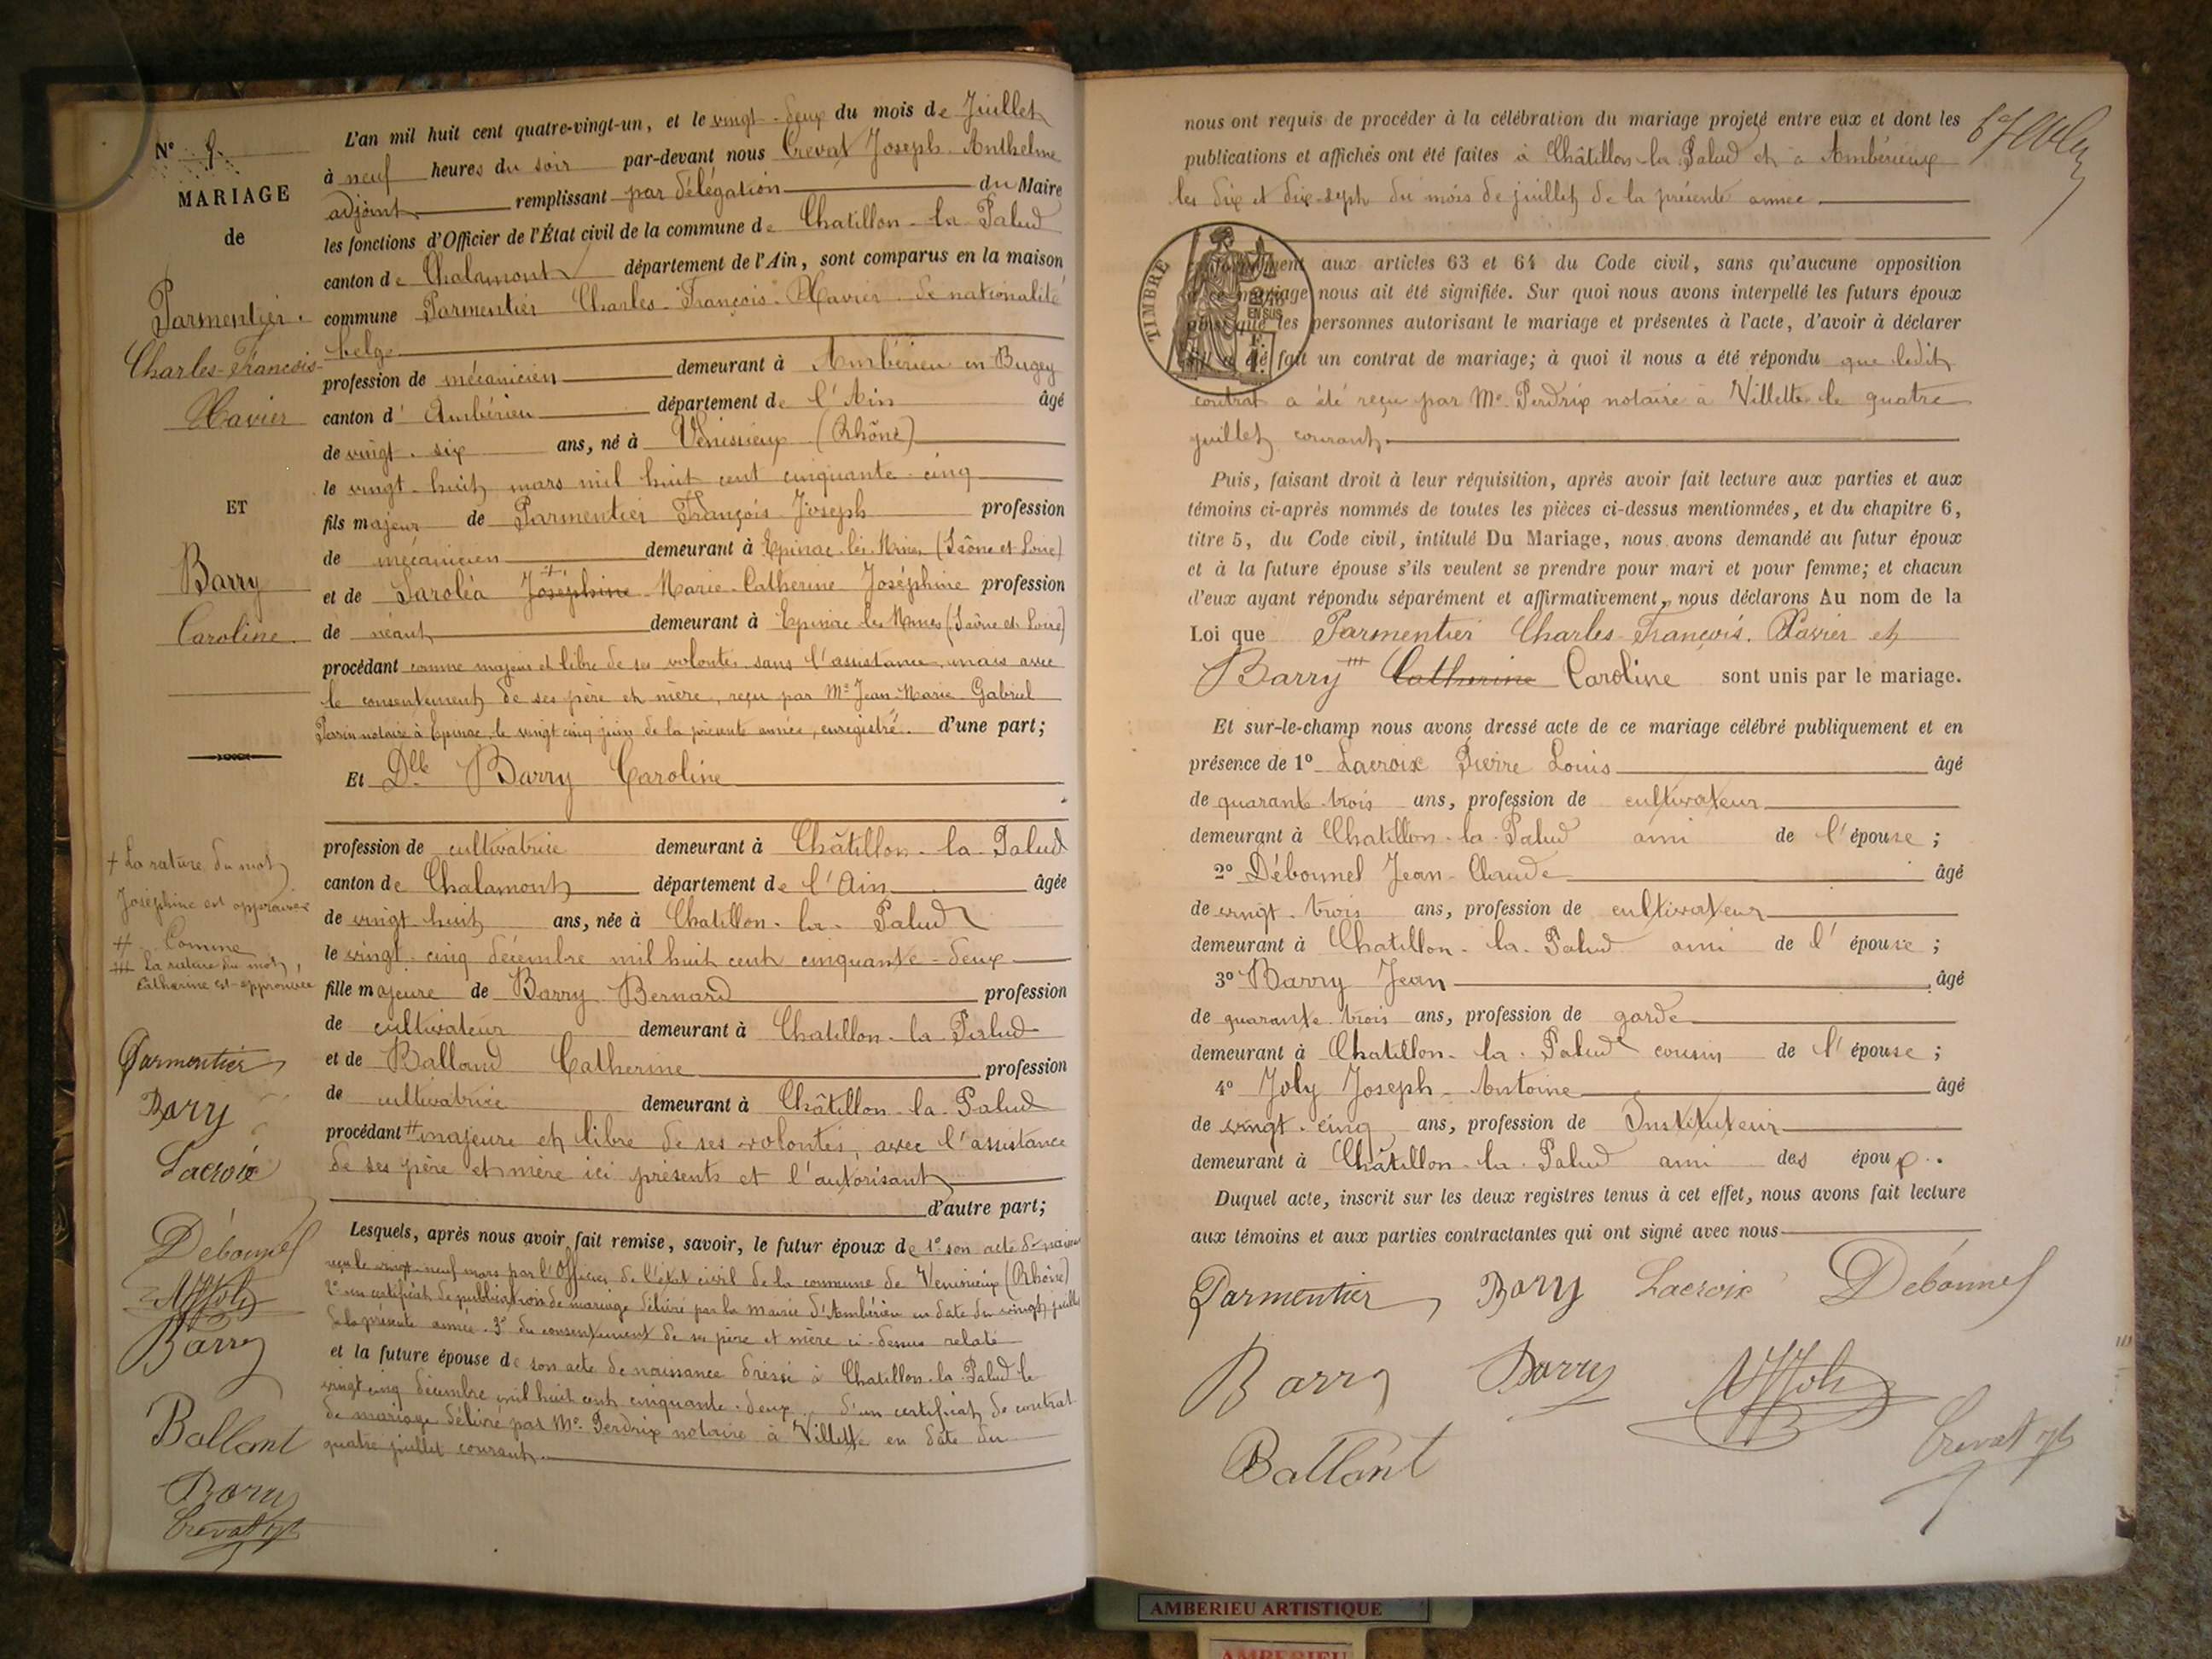 N° 8.
MARIAGE
de
Parmentier.
Charles-François-
Xavier
ET
Barry
Caroline.
+ La rature du mot
Joséphine est approuvée
# Comme
## La rature du mot,
Catherine est approuvée
Parmentier
Barry
Lacroix
Débonnel
Barry
Balland
Barry
Crevat
L'an mil huit cent quatre-vingt-un, et le vingt-deux du mois de Juillet
à neuf heures du soir par-devant nous Crevat Joseph Anthelme
adjoint remplissant par délégation du Maire
les fonctions d'Officier de l'État civil de la commune de Chatillon-la-Palud
canton de Chalamont département de l'Ain, sont comparus en la maison
commune Parmentier Charles-François-Xavier de nationalité
belge
profession de mécanicien demeurant à Ambérieu en Bugey
canton d' Ambérieu département de l'Ain âgé
de vingt-six ans, né à Vénissieux (Rhône)
le vingt-huit mars mil huit cent cinquante-cinq
fils majeur de Parmentier François Joseph profession
de mécanicien demeurant à Epinac-les-Mines (Saône et Loire)
et de Saroléa + Joséphine Marie-Catherine Joséphine profession
de néant demeurant à Epinac les Mines (Saône et Loire)
procédant comme majeur et libre de ses volontés sans l'assistance, mais avec
le consentement de ses père et mère, reçu par Me Jean-Marie Gabriel
Perrin notaire à Epinac, le vingt cinq juin de la présente année, enregistré. d'une part;
Et Dlle Barry Caroline
profession de cultivatrice demeurant à Châtillon-la-Palud
canton de Chalamont département de l'Ain âgée
de vingt-huit ans, née à Chatillon-la-Palud
le vingt-cinq décembre mil huit cent cinquante-deux
fille majeure de Barry Bernard profession
de cultivateur demeurant à Chatillon-la-Palud
et de Balland Catherine profession
de cultivatrice demeurant à Châtillon-la-Palud
procédant # majeure et libre de ses volontés, avec l'assistance
de ses père et mère ici présents et l'autorisant
d'autre part;
Lesquels, après nous avoir fait remise, savoir, le futur époux de 1° son acte de naissance
reçu le vingt-neuf mars par l'Officier de l'état civil de la commune de Vénissieux (Rhône)
2° un certificat de publication de mariage délivré par la mairie d'Ambérieu en date du vingt juillet
de la présente année. 3° du consentement de ses père et mère ci-dessus relaté
et la future épouse de son acte de naissance dressé à Chatillon-la-Palud le
vingt cinq décembre mil huit cent cinquante-deux. d'un certificat de contrat
de mariage délivré par Me Perdrix notaire à Villette en date du
quatre juillet courant.
nous ont requis de procéder à la célébration du mariage projeté entre eux et dont les
publications et affiches ont été faites à Châtillon-la-Palud et à Ambérieux
les dix et dix-sept du mois de juillet de la présente année
TIMBRE
EN SUS
aux articles 63 et 64 du Code civil, sans qu'aucune opposition
à ce mariage nous ait été signifiée. Sur quoi nous avons interpellé les futurs époux
ainsi que les personnes autorisant le mariage et présentes à l'acte, d'avoir à déclarer
s'il a été fait un contrat de mariage; à quoi il nous a été répondu que ledit
contrat a été reçu par Me Perdrix notaire à Villette le quatre
juillet courant.
Puis, faisant droit à leur réquisition, après avoir fait lecture aux parties et aux
témoins ci-après nommés de toutes les pièces ci-dessus mentionnées, et du chapitre 6,
titre 5, du Code civil, intitulé Du Mariage, nous avons demandé au futur époux
et à la future épouse s'ils veulent se prendre pour mari et pour femme; et chacun
d'eux ayant répondu séparément et affirmativement, nous déclarons Au nom de la
Loi que Parmentier Charles-François-Xavier et
Barry ## Catherine Caroline sont unis par le mariage.
Et sur-le-champ nous avons dressé acte de ce mariage célébré publiquement et en
présence de 1° Lacroix Pierre Louis âgé
de quarante-trois ans, profession de cultivateur
demeurant à Chatillon-la-Palud ami de l'épouse;
2° Débonnel Jean-Claude âgé
de vingt-trois ans, profession de cultivateur
demeurant à Chatillon-la-Palud ami de l'épouse;
3° Barry Jean âgé
de quarante-trois ans, profession de garde
demeurant à Chatillon-la-Palud cousin de l'épouse;
4° Joly Joseph-Antoine âgé
de vingt-cinq ans, profession de Instituteur
demeurant à Châtillon-la-Palud ami des époux.
Duquel acte, inscrit sur les deux registres tenus à cet effet, nous avons fait lecture
aux témoins et aux parties contractantes qui ont signé avec nous
Parmentier Barry Lacroix Débonnel
Barry Barry
Balland Crevat
AMBERIEU ARTISTIQUE
AMBERIEU